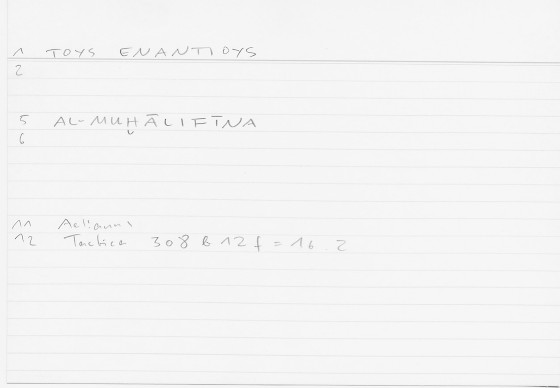 1 TOYS ENANTIOYS
2
5 AL-MUḪĀLIFĪNA
6
11 Aelianus
12 Tactica 308 B 12 f = 16 2